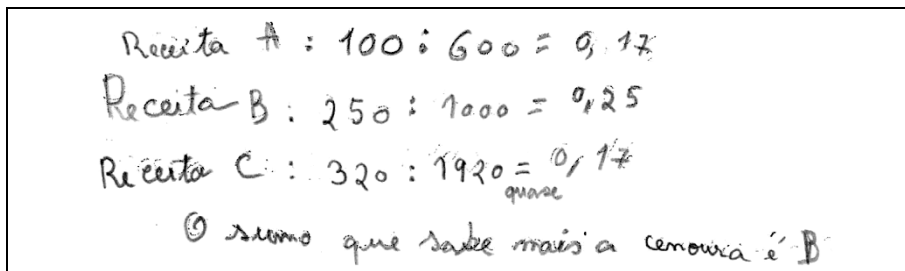 Receita A : 100 : 600 = 0,17
Receita B : 250 : 1000 = 0,25
Receita C : 320 : 1920 = 0,17
quase
O sumo que sabe mais a cenoura é B